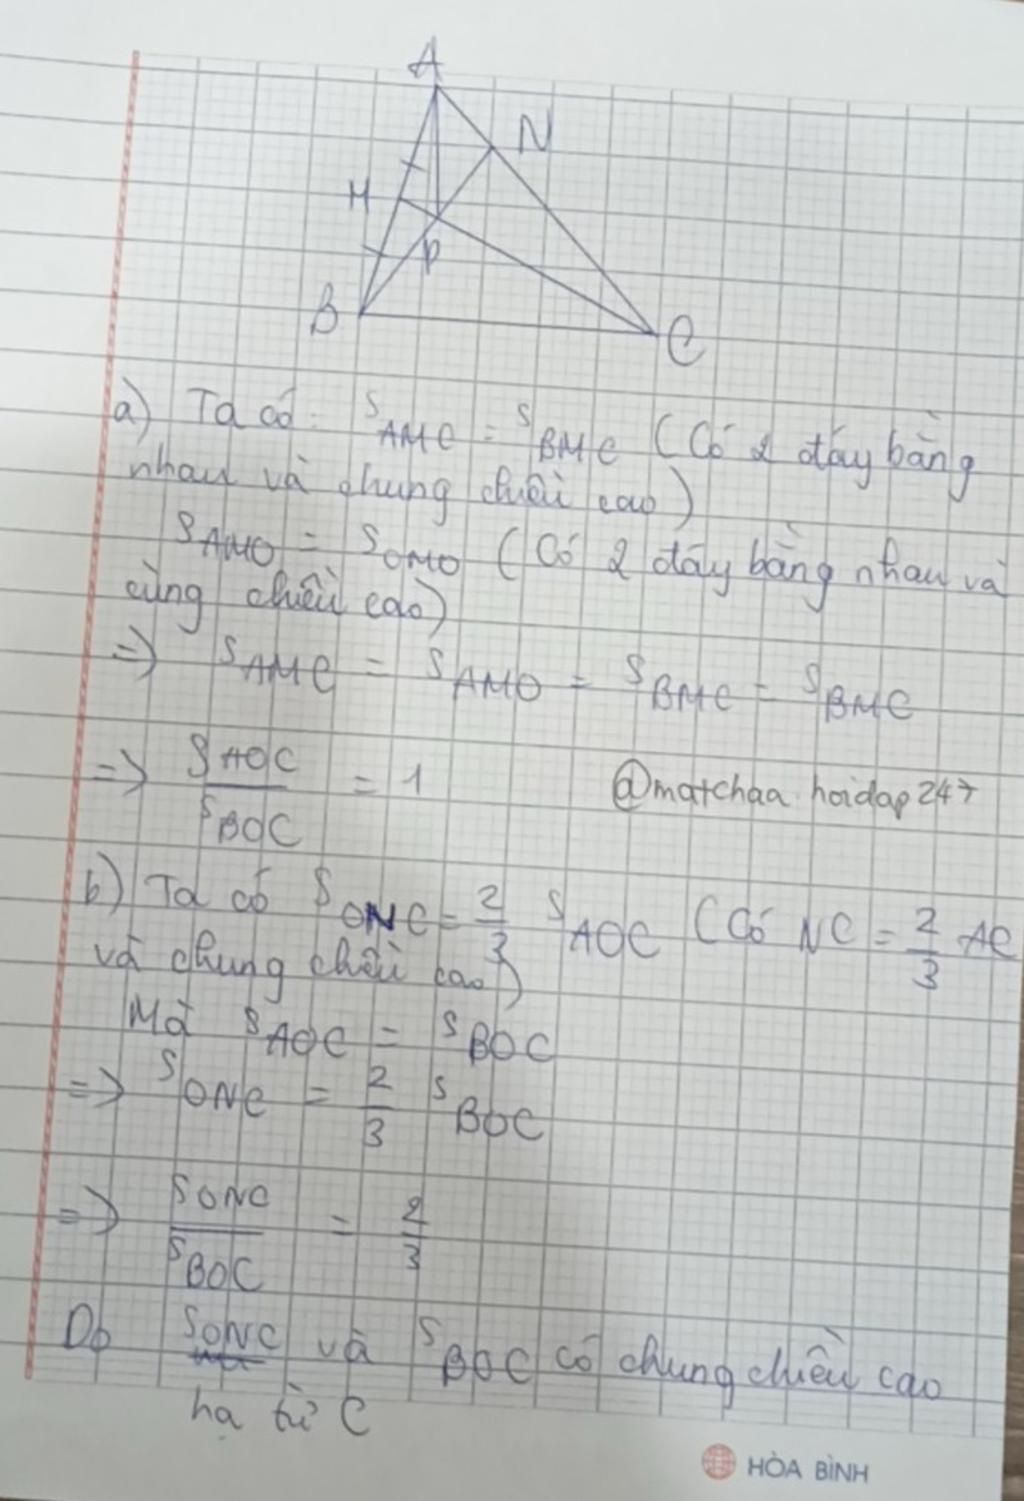 A
N
M
P
B
C
a) Ta có: SAMC = SBMC (Có 2 đáy bằng
nhau và chung chiều cao)
SAMO = SOMO (Có 2 đáy bằng nhau và
cùng chiều cao)
=> SAMC = SAMO = SBMC - SBMC
=> SAOC/SBOC = 1
@matchaa hoidap247
b) Ta có SONC = 2/3 SAOC (Có NC = 2/3 AC
và chung chiều cao)
Mà SAOC = SBOC
=> SONC = 2/3 SBOC
=> SONC/SBOC = 2/3
Do SONC và SBOC có chung chiều cao
hạ từ C
HÒA BÌNH